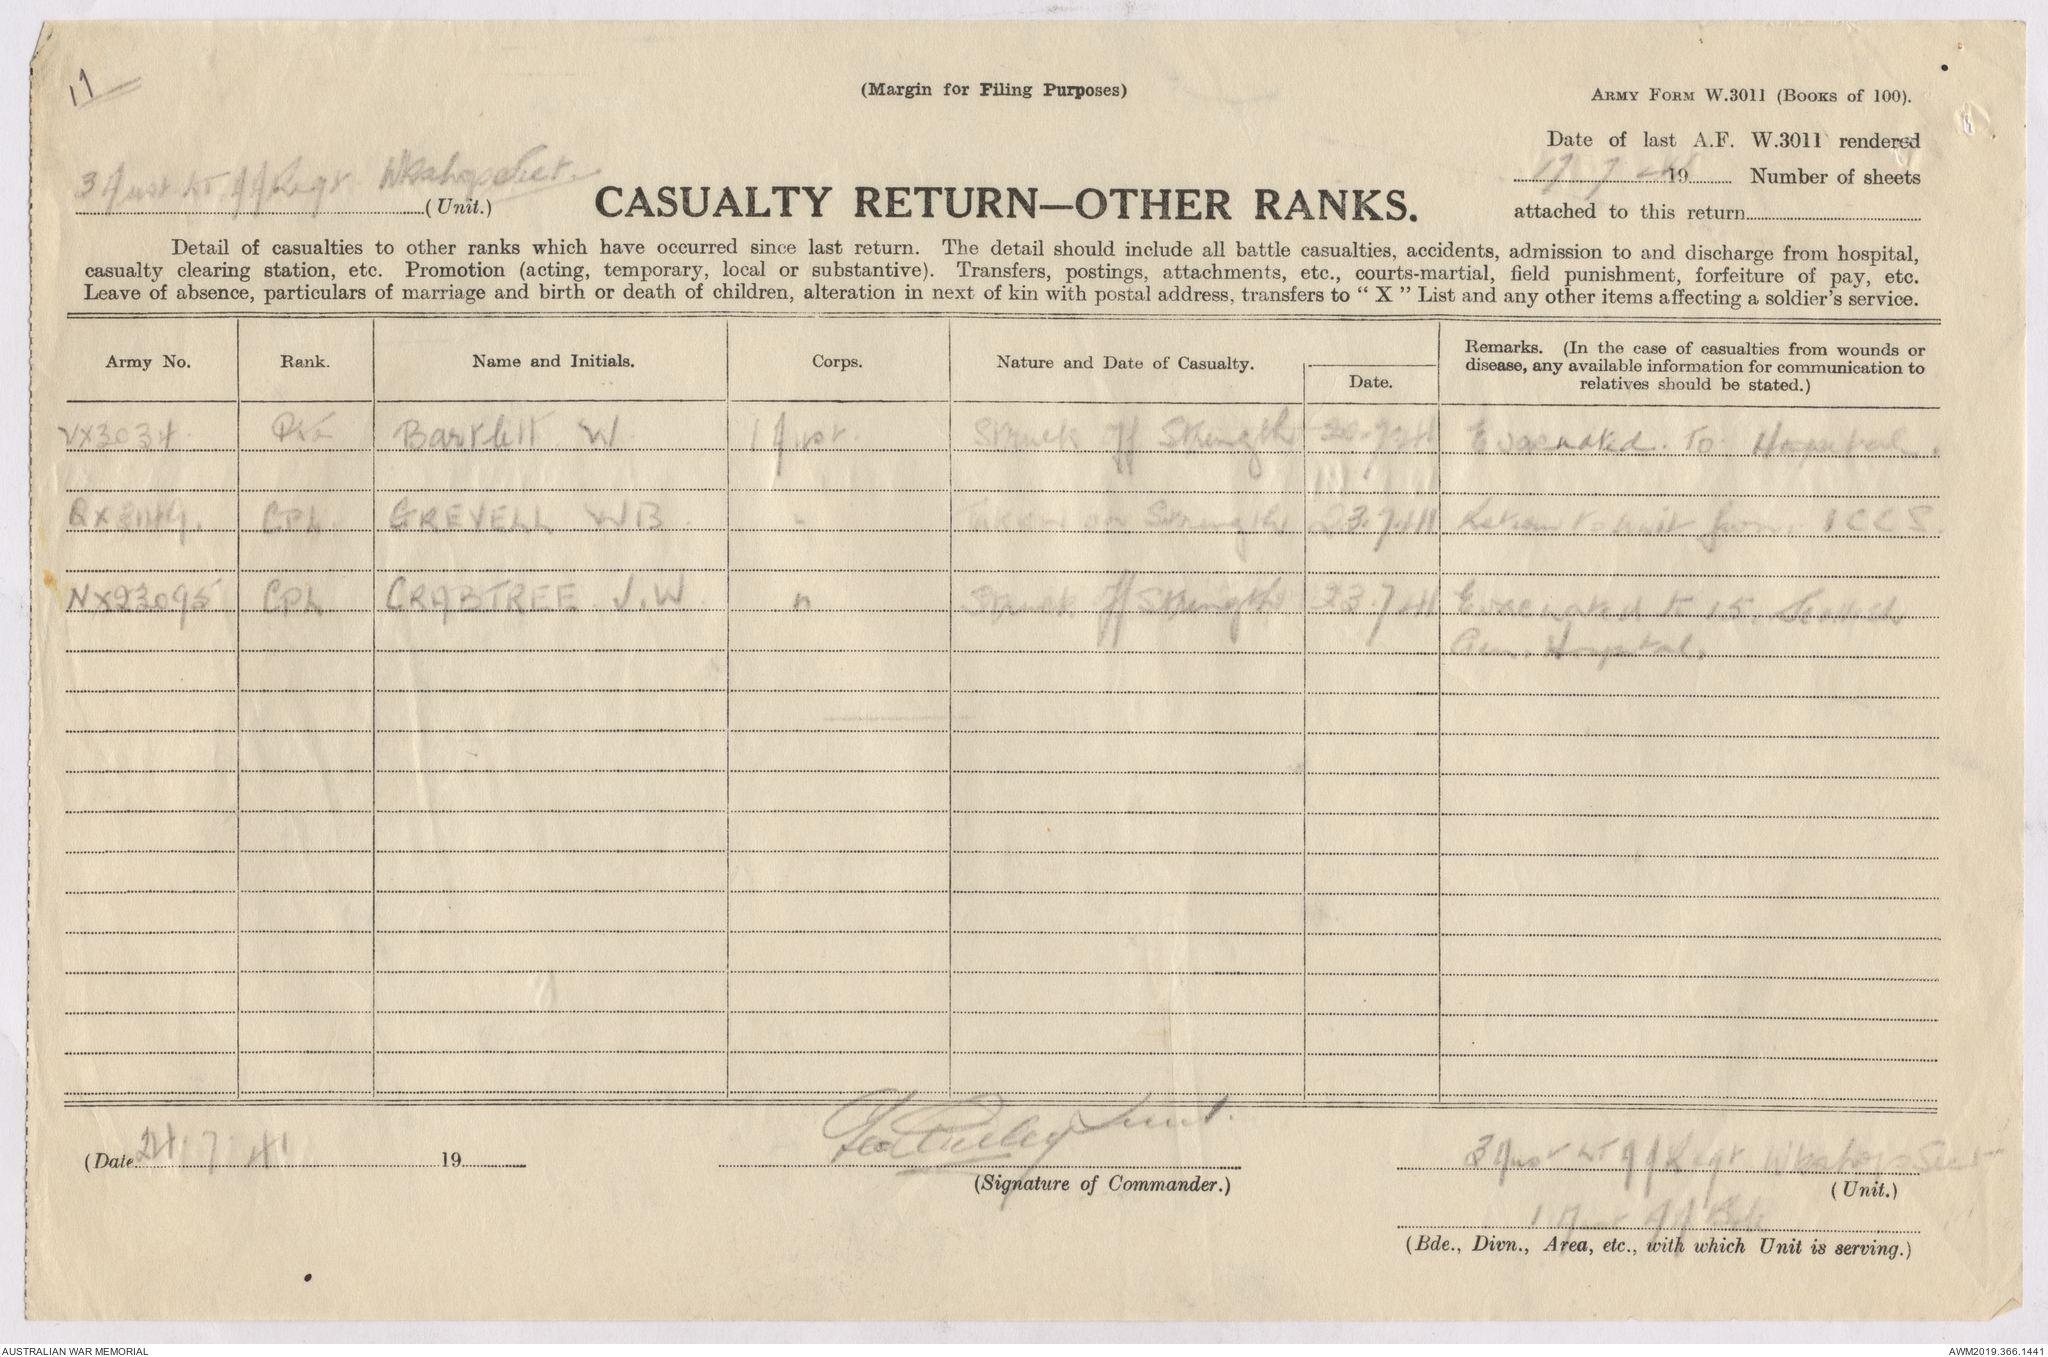 11
(Margin for Filing Purposes)
ARMY FORM W.3011 (BOOKS OF 100).
Date of last A.F. W.3011 rendered
17 7 41 19 Number of sheets
attached to this return
3 Aust Lt AA Regt Wkshop Sect.
(Unit.)
CASUALTY RETURN—OTHER RANKS.
Detail of casualties to other ranks which have occurred since last return. The detail should include all battle casualties, accidents, admission to and discharge from hospital,
casualty clearing station, etc. Promotion (acting, temporary, local or substantive). Transfers, postings, attachments, etc., courts-martial, field punishment, forfeiture of pay, etc.
Leave of absence, particulars of marriage and birth or death of children, alteration in next of kin with postal address, transfers to "X" List and any other items affecting a soldier's service.
Army No. Rank. Name and Initials. Corps. Nature and Date of Casualty. Date. Remarks. (In the case of casualties from wounds or
disease, any available information for communication to
relatives should be stated.)
VX3034. Pte Bartlett W. 1 Aust. Struck off Strength 20.7.41 Evacuated. To Hospital.
CPL GREVELL WB. " Taken on Strength 23.7.41 Return to unit from 1 CCS.
NX23095 CPL CRABTREE J.W. " Struck off Strength 23.7.41 Evacuated to 15. Scottish
Gen. Hospital.
(Date 24 7 41 19
Lieut.
(Signature of Commander.)
3 Aust Lt AA Regt Wkshop Sect
(Unit.)
1 Aust AA Bde
(Bde., Divn., Area, etc., with which Unit is serving.)
AUSTRALIAN WAR MEMORIAL
AWM2019.366.1441